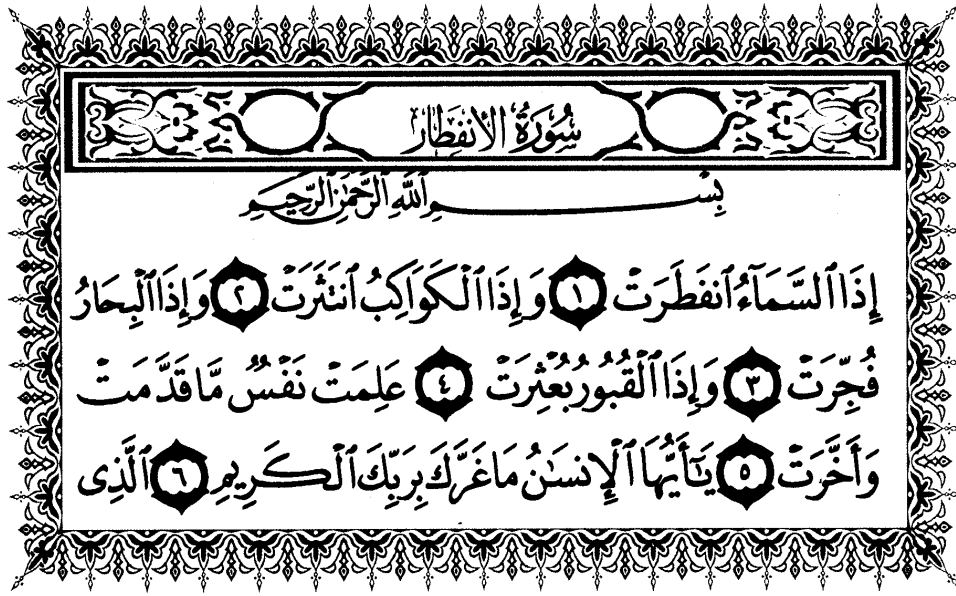 سُورَةُ الْانفِطَار
بِسْمِ ٱللَّهِ ٱلرَّحْمَٰنِ ٱلرَّحِيمِ
إِذَا ٱلسَّمَآءُ ٱنفَطَرَتْ ١ وَإِذَا ٱلْكَوَاكِبُ ٱنتَثَرَتْ ٢ وَإِذَا ٱلْبِحَارُ
فُجِّرَتْ ٣ وَإِذَا ٱلْقُبُورُ بُعْثِرَتْ ٤ عَلِمَتْ نَفْسٌ مَّا قَدَّمَتْ
وَأَخَّرَتْ ٥ يَٰٓأَيُّهَا ٱلْإِنسَٰنُ مَا غَرَّكَ بِرَبِّكَ ٱلْكَرِيمِ ٦ ٱلَّذِى